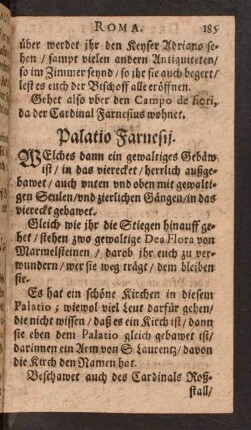 ROMA. 185
über werdet jhr den Keyser Adriano se-
hen / sampt vielen andern Antiquiteten /
so im Zimmer seynd / so jhr sie auch begert /
lest es euch der Bischoff alle eröffnen.
Gehet also vber den Campo de fiori,
da der Cardinal Farnesius wohnet.
Palatio Farnesij.
WElches dann ein gewaltiges Gebäw
ist / in das vierecket / herrlich außge-
bawet / auch vnten vnd oben mit gewalti-
gen Seulen / vnd zierlichen Gängen / in das
viereckt gebawet.
Gleich wie jhr die Stiegen hinauff ge-
het / stehen zwo gewaltige Dea Flora von
Marmelsteinen / darob jhr euch zu ver-
wundern / wer sie weg trägt / dem bleiben
sie.
Es hat ein schöne Kirchen in diesem
Palatio; wiewol viel Leut darfür gehen /
die nicht wissen / daß es ein Kirch ist / dann
sie eben dem Palatio gleich gebawet ist /
darinnen ein Arm von S. Laurentz / davon
die Kirch den Namen hat.
Beschawet auch des Cardinals Roß-
stall /